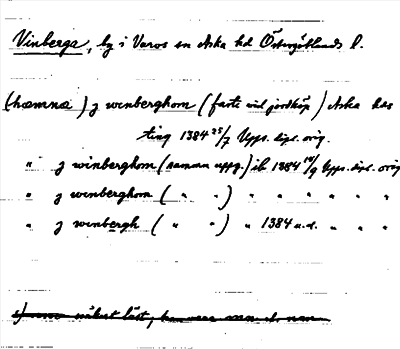 Vinberga, by i Varvs sn Aska hd Östergötlands l.
(hæmna) j winberghom (faste vid jordköp) Aska hds
ting 1384 25/7 Upps. dipl. orig.
" j winberghom (samma uppg.) ib 1384 19/9 Upps. dipl. orig
" j winberghom ( " " ) " " " " " "
" j winbergh ( " " ) " 1384 u.d. " " "